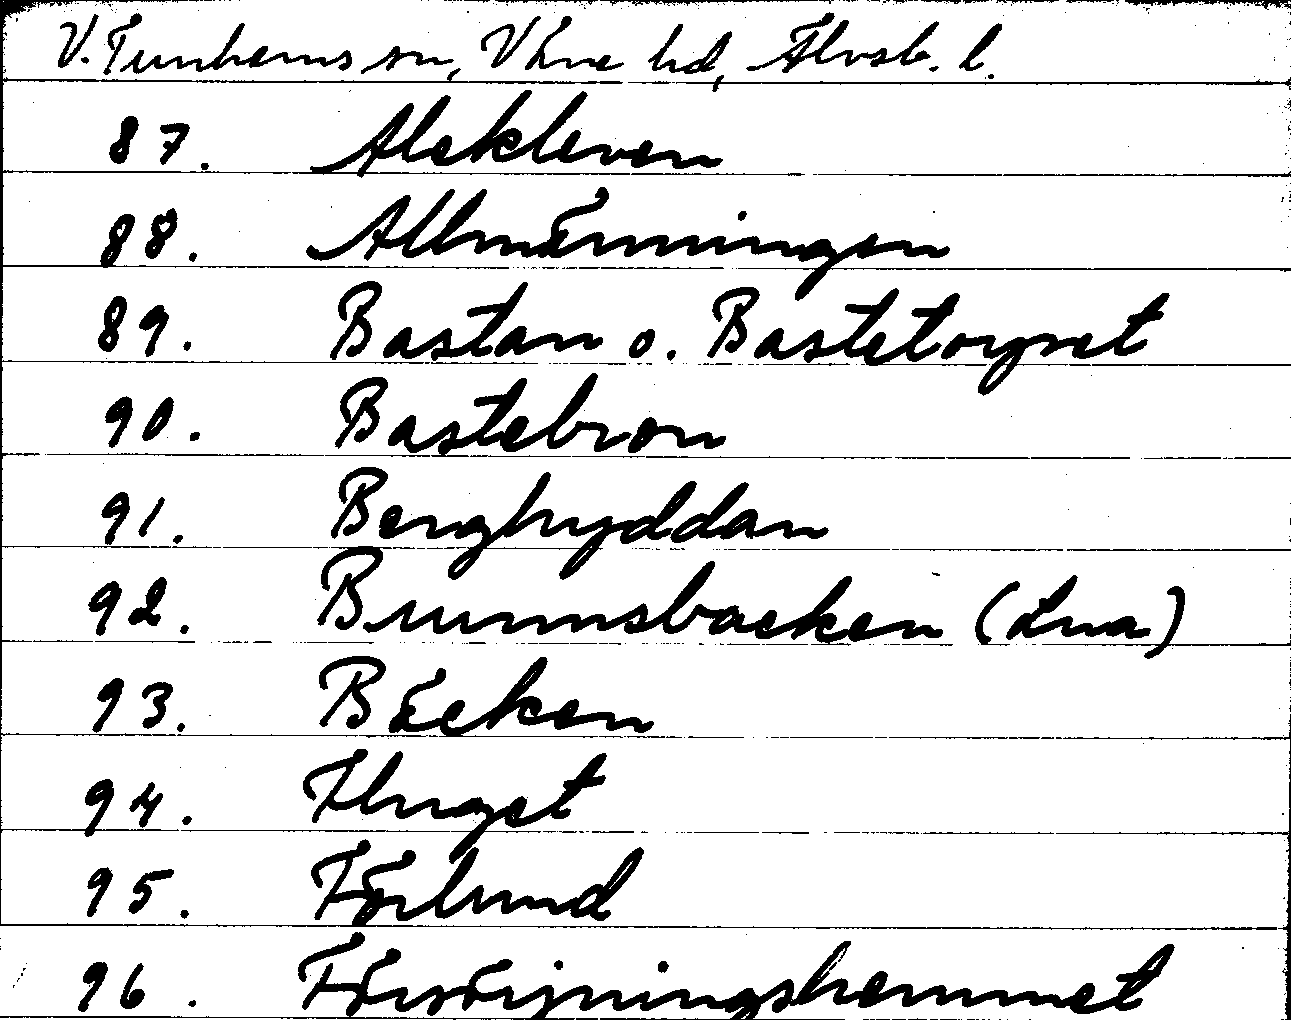 V. Tunhems sn, Väne hd, Älvsb. l.
87. Alekleven
88. Allmänningen
89. Bastan o. Bastetorpet
90. Bastebron
91. Berghyddan
92. Brunnsbacken (Lna)
93. Bäcken
94. Fluget
95. Förlund
96. Försörjningshemmet